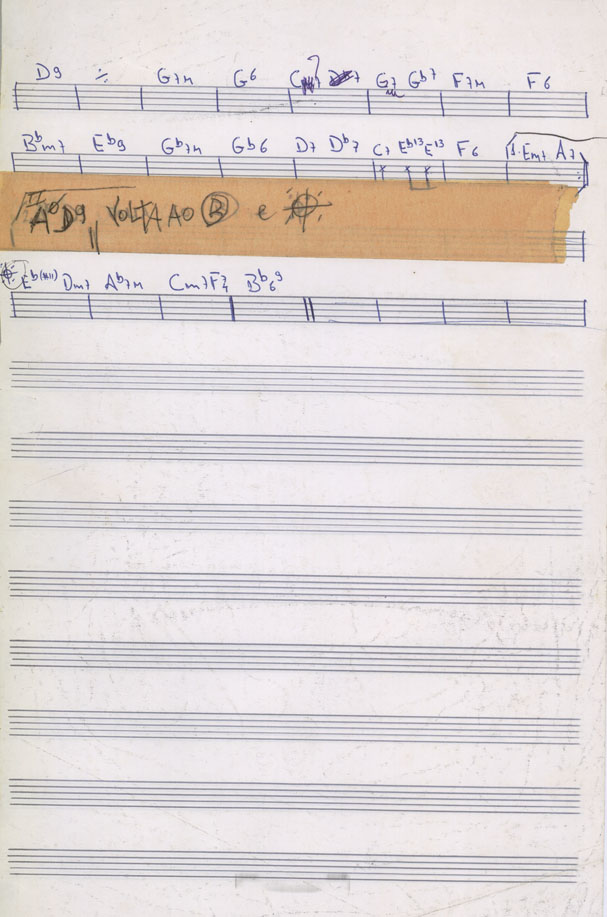 D9 ٪ G7M G6 G7 Gb7 F7M F6
Bbm7 Eb9 Gb7M Gb6 D7 Db7 C7 Eb13 E13 F6 1. Em7 A7
II D9 VOLTA AO B e
Eb(#11) Dm7 Ab7M Cm7 F7 Bb69